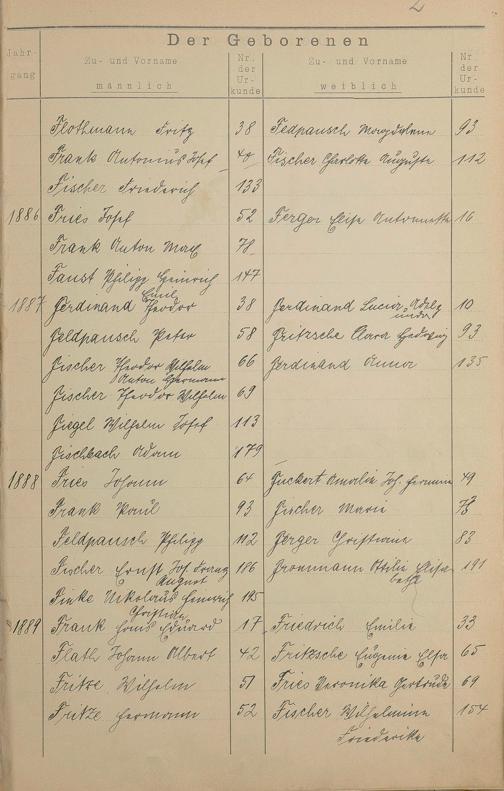 2
Der Geborenen
Jahrgang Zu- und Vorname männlich Nr. der Urkunde Zu- und Vorname weiblich Nr. der Urkunde
Flothmann Fritz 38 Fedpausch Magdalena 93
Frank Antonius Josef 40 Fischer Charlotte Auguste 112
Fischer Friederich 133
1886 Fries Josef 52 Ferger Elise Antonnette 16
Frank Anton Max 78
Faust Philipp Heinrich 147
1887 Ferdinand Emil Theodor 38 Ferdinand Lucia 10
Feldpausch Peter 58 Fritzsche Clara Hedwig 93
Fischer Theodor Wilhelm Anton Hermann 66 Ferdinand Anna 135
Fischer Theodor Wilhelm 69
Fiegel Wilhelm Josef 113
Fischbach Adam 179
1888 Fries Johann 64 Fuckert Amalie Joh. Hermine 49
Frank Paul 93 Fischer Marie 78
Feldpausch Philipp 112 Ferger Christiane 83
Fischer Ernst Jos. Franz August 186 Fronmann Ottilie Elisabetha 191
Finke Nikolaus Heinrich Christian 195
1889 Frank Hans Eduard 17 Friedrich Emilie 33
Flath Johann Albert 42 Fritzsche Eugenie Elsa 65
Fritze Wilhelm 51 Fries Veronika Gertrude 69
Fritze Hermann 52 Fischer Wilhelmine 154
Friederike